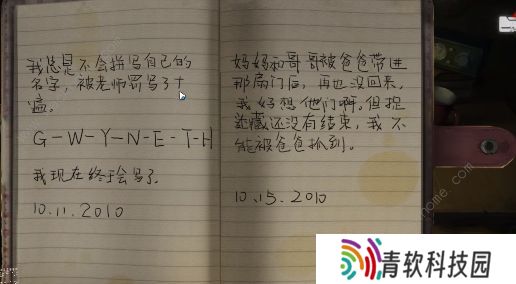 我总是不会拼写自己的
名字，被老师罚写了十
遍。
G-W-Y-N-E-T-H
我现在终于会写了。
10.11.2010
妈妈和哥哥被爸爸带进
那扇门后，再也没回来，
我好想他们啊。但捉
迷藏还没有结束，我不
能被爸爸抓到。
10.15.2010
青软科技园